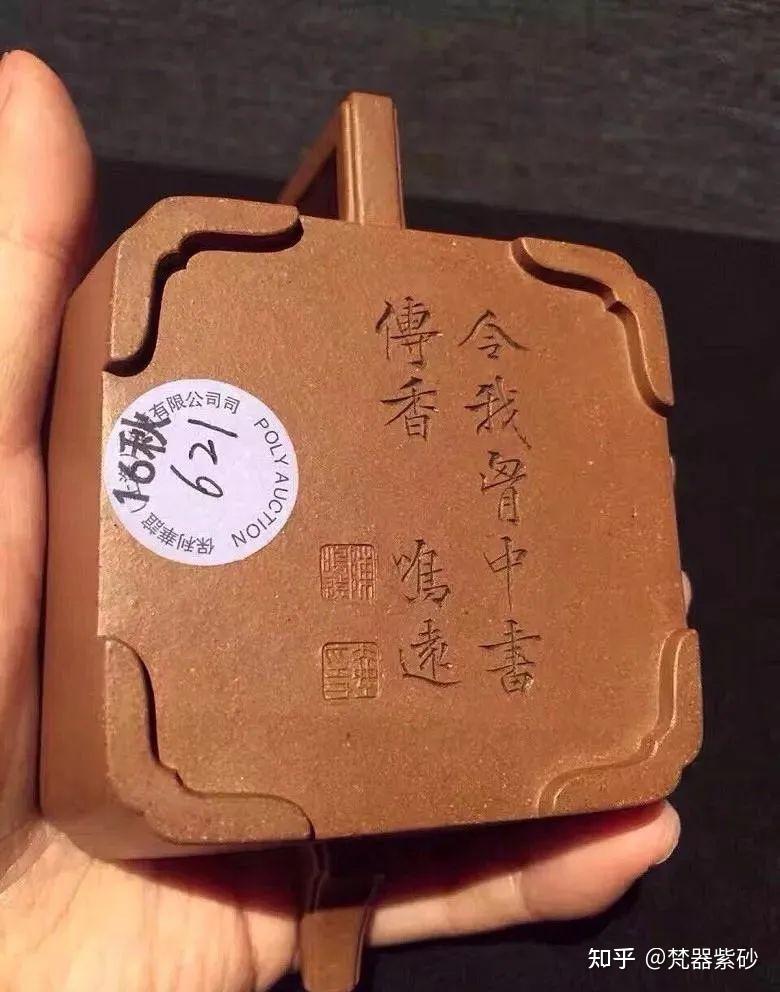 令我胷中書
傳香 鳴遠
有限公司司
POLY AUCTION
保利華誼（上海
16秋
621
知乎 @梵器紫砂